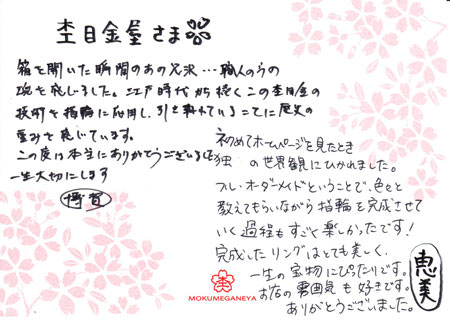 杢目金屋さま
箱を開いた瞬間のあの光沢…職人の方の
魂を感じました。江戸時代から続くこの杢目金の
技術を指輪に応用し、引き継れていることに歴史の
重みを感じています。
この度は本当にありがとうございました
一生大切にします
博賀
初めてホームページを見たとき
独 の世界観にひかれました。
フル・オーダーメイドということで、色々と
教えてもらいながら指輪を完成させて
いく過程もすごく楽しかったです!
完成したリングはとても美しく、
一生の宝物にぴったりです。
お店の雰囲気も好きです。
ありがとうございました。
恵美
MOKUMEGANEYA